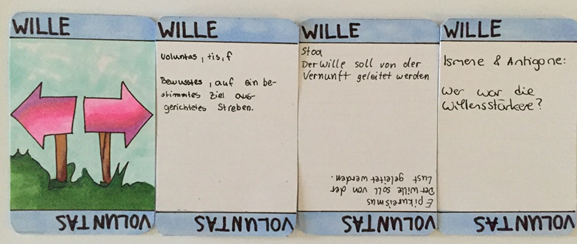 WILLE
VOLUNTAS
WILLE
voluntas, tis, f
Bewusstes, auf ein be-
stimmtes Ziel aus-
gerichtetes Streben.
VOLUNTAS
WILLE
Stoa
Der Wille soll von der
Vernunft geleitet werden
Epikureismus
Der Wille soll von der
Lust geleitet werden.
VOLUNTAS
WILLE
Ismene & Antigone:
Wer war die
Willensstärkere?
VOLUNTAS